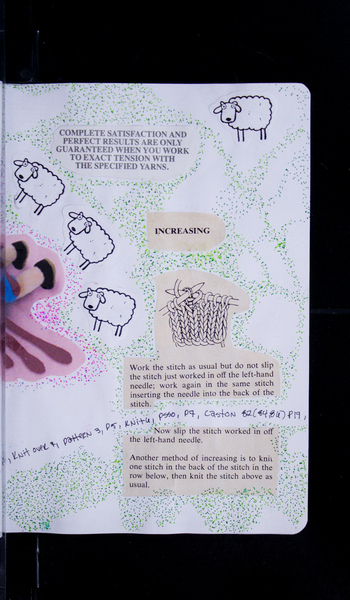 COMPLETE SATISFACTION AND
PERFECT RESULTS ARE ONLY
GUARANTEED WHEN YOU WORK
TO EXACT TENSION WITH
THE SPECIFIED YARNS.
INCREASING
Work the stitch as usual but do not slip
the stitch just worked in off the left-hand
needle; work again in the same stitch
inserting the needle into the back of the
stitch.
, knit over 7, pattern 3, P5, knit 4, psso, P7, Caston 82(84,86) P19,
Now slip the stitch worked in off
the left-hand needle.
Another method of increasing is to knit
one stitch in the back of the stitch in the
row below, then knit the stitch above as
usual.